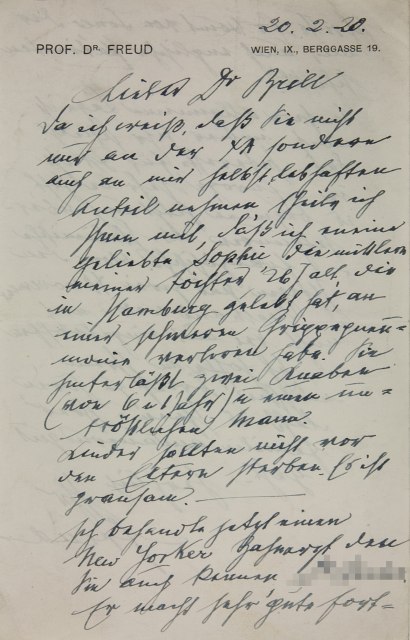 20. 2. 20.
PROF. DR. FREUD
WIEN, IX., BERGGASSE 19.
Lieber Dr Brill
Da ich weiß, daß Sie nicht
nur an der ΨΑ sondern
auch an mir selbst lebhaften
Anteil nehmen theile ich
Ihnen mit, daß ich meine
geliebte Sophie die mittlere
meiner Töchter 26 J alt, die
in Hamburg gelebt hat, an
einer schweren Grippepneu=
monie verloren habe. Sie
hinterläßt zwei Knaben
(von 6 u 1 Jahr) u einen un=
tröstlichen Mann.
Kinder sollten nicht vor
den Eltern sterben. Es ist
grausam.
Ich behandle jetzt einen
New Yorker Zahnarzt den
Sie auch kennen
Er macht sehr gute Fort=